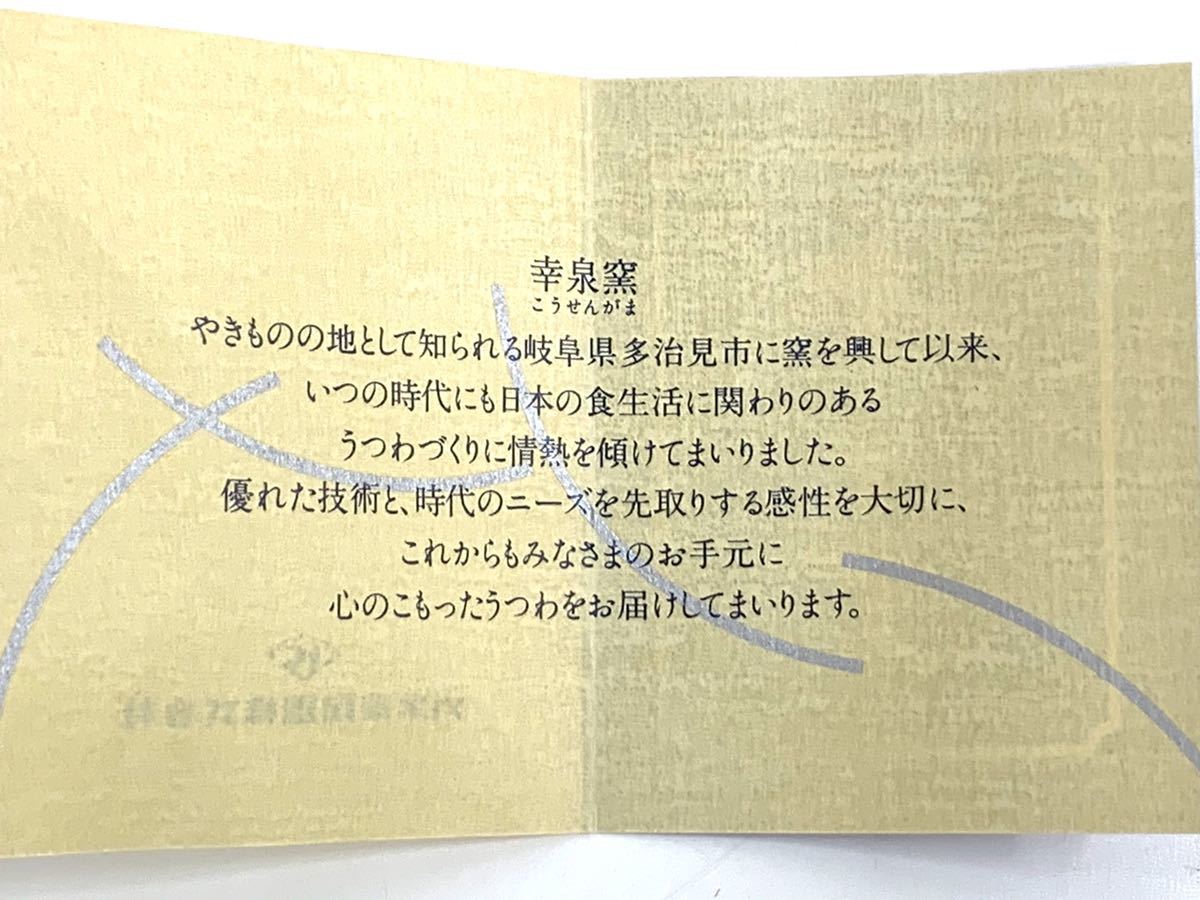 幸泉窯
こうせんがま
やきものの地として知られる岐阜県多治見市に窯を興して以来、
いつの時代にも日本の食生活に関わりのある
うつわづくりに情熱を傾けてまいりました。
優れた技術と、時代のニーズを先取りする感性を大切に、
これからもみなさまのお手元に
心のこもったうつわをお届けしてまいります。